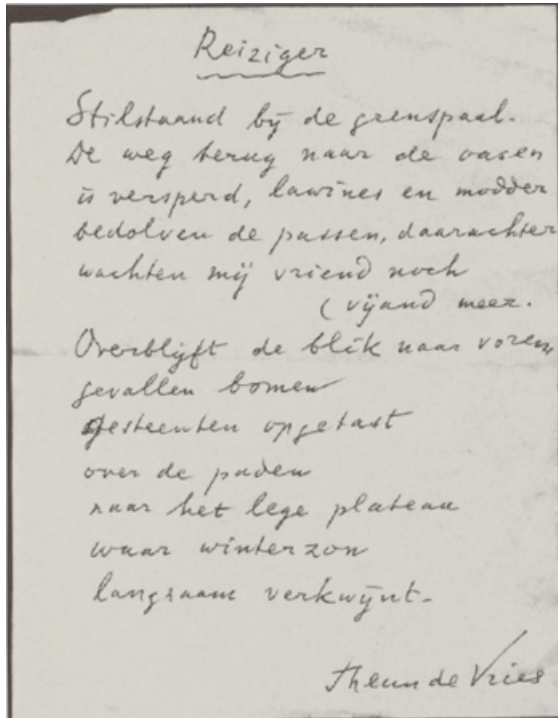 Reiziger
Stilstaand bij de grenspaal.
De weg terug naar de oasen
is versperd, lawines en modder
bedolven de passen, daarachter
wachten mij vriend noch
(vijand meer.
Overblijft de blik naar voren,
gevallen bomen
gesteenten opgetast
over de paden
naar het lege plateau
waar winterzon
langzaam verkwijnt.
Theun de Vries